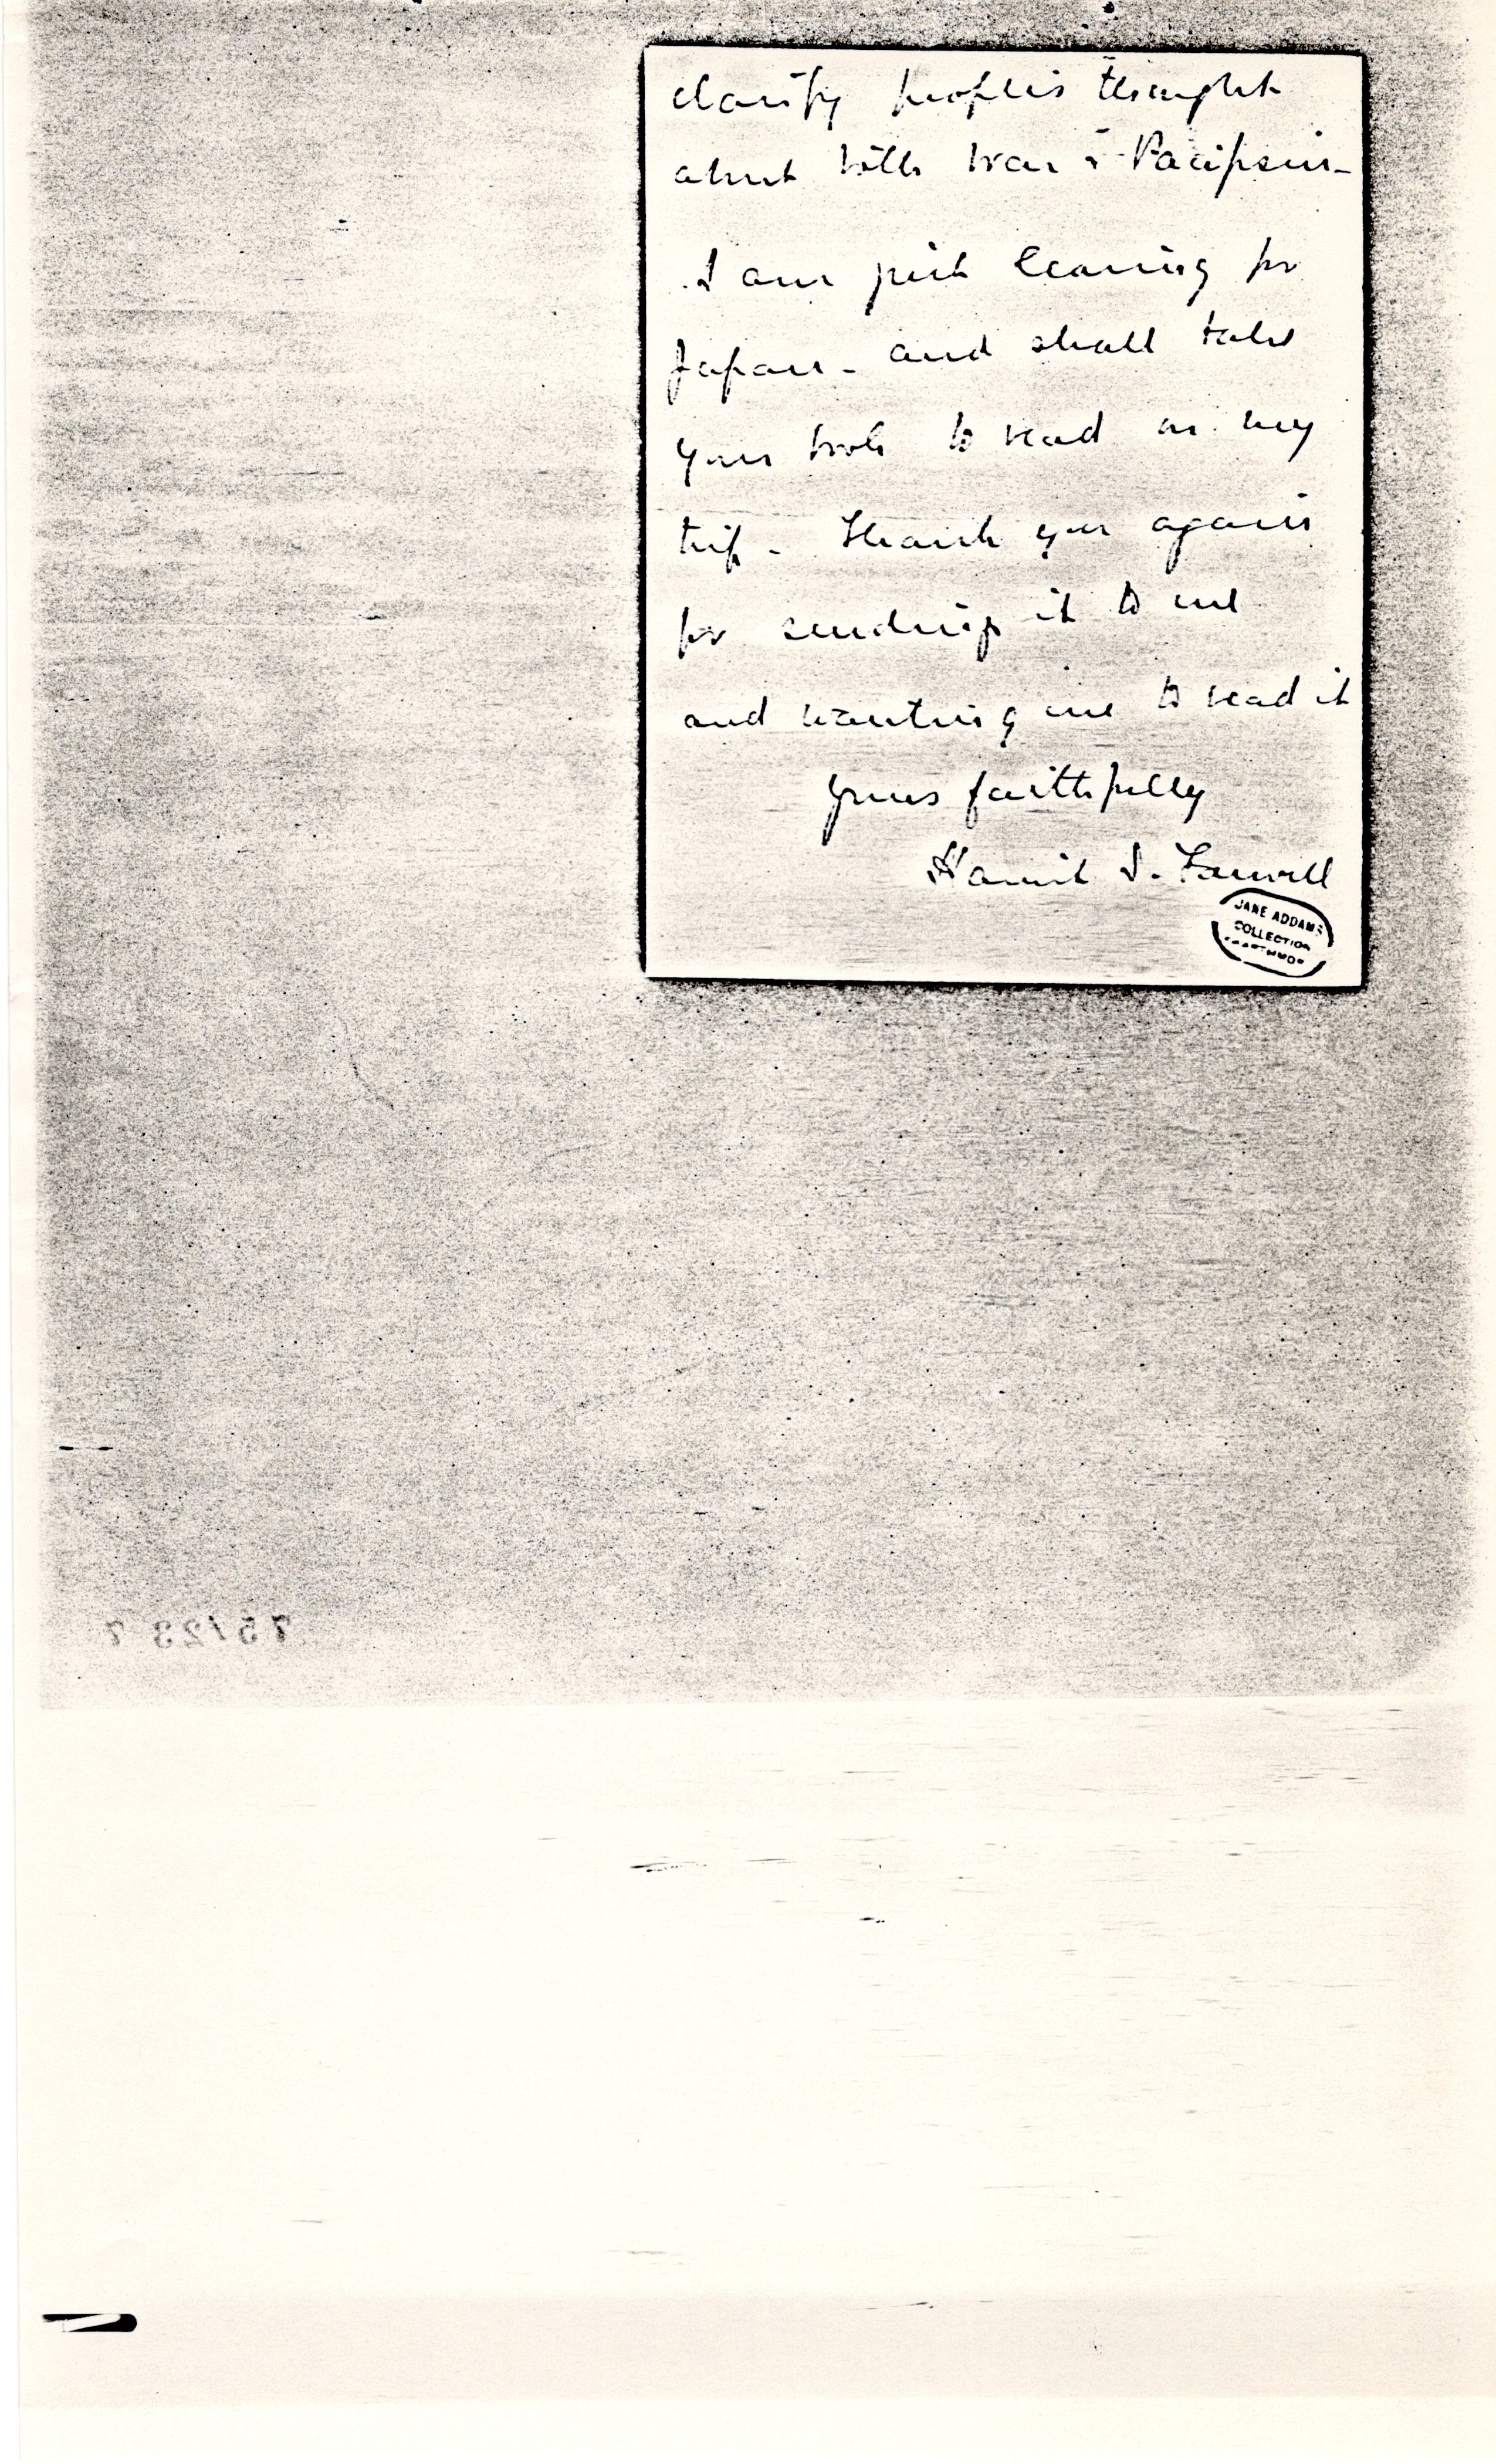 clarify people's thought
about both War & Pacifism -
I am just leaving for
Japan - and shall take
your book to read on my
trip - Thank you again
for sending it to me
and wanting me to read it
Yours faithfully
JANE ADDAMS
COLLECTION
75/23 7